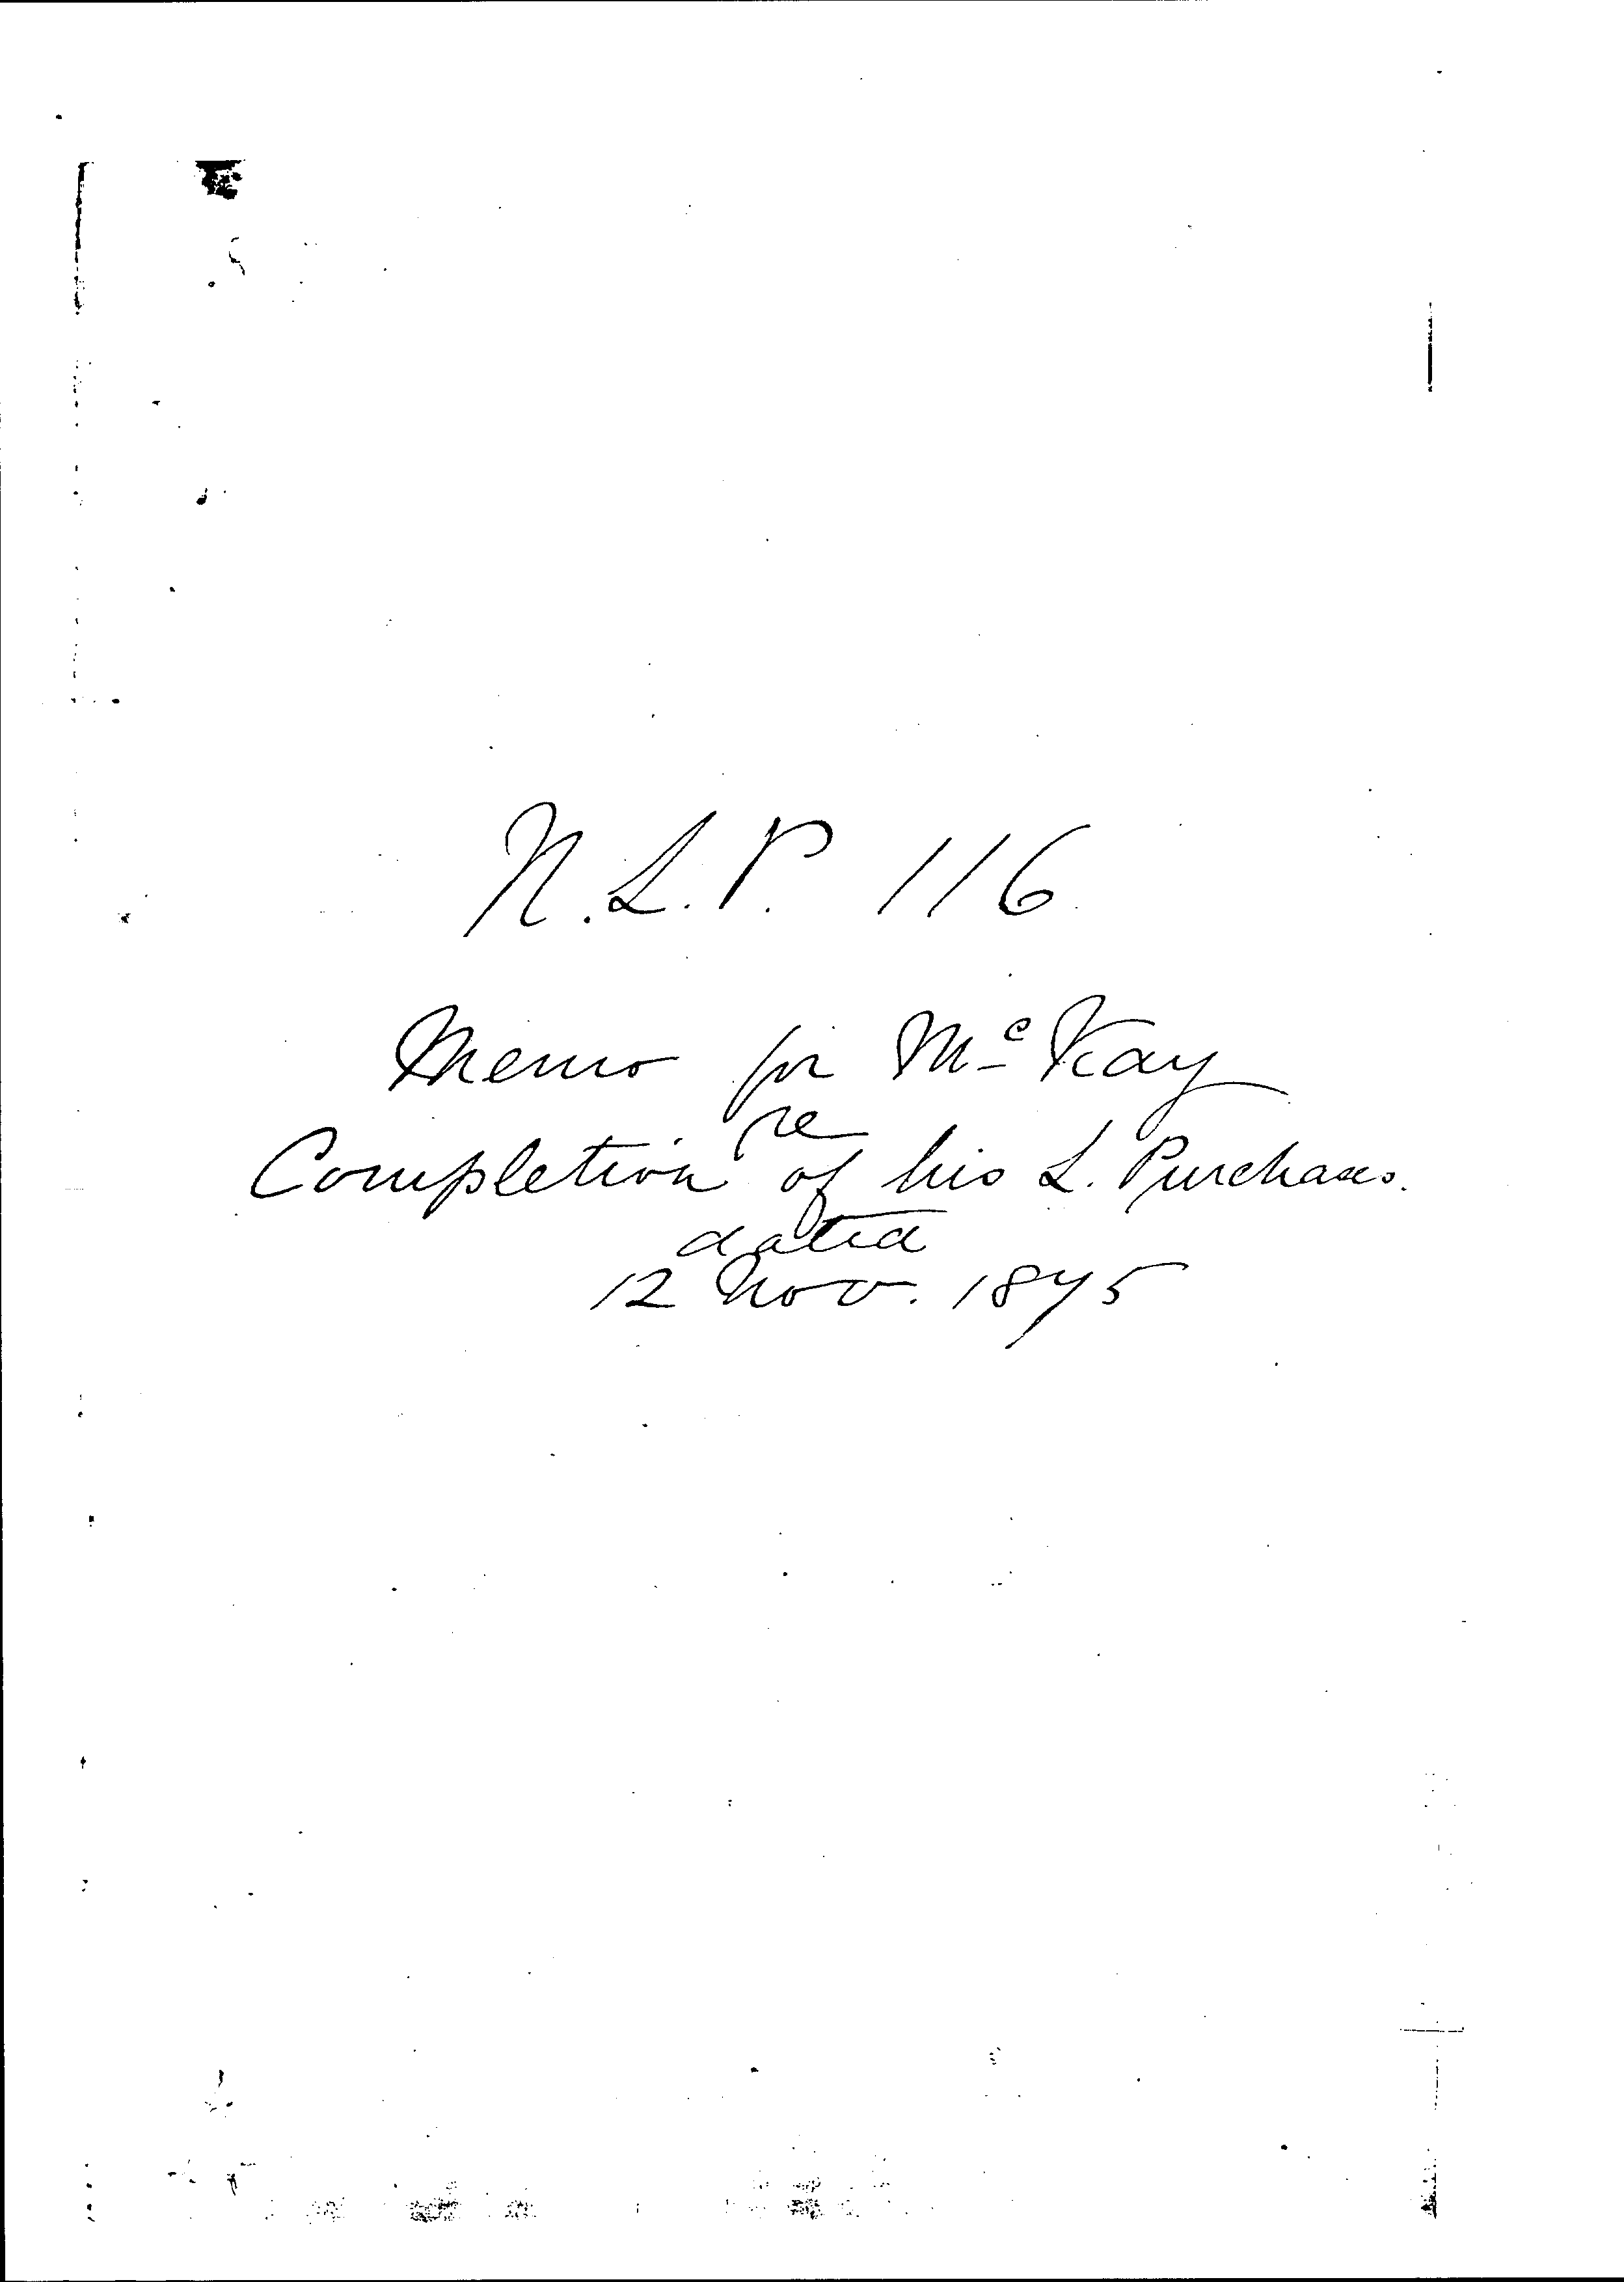 N.L.P. 116
Memo for Mc Kay
re
Completion of his L. Purchases.
dated
12 Nov. 1875